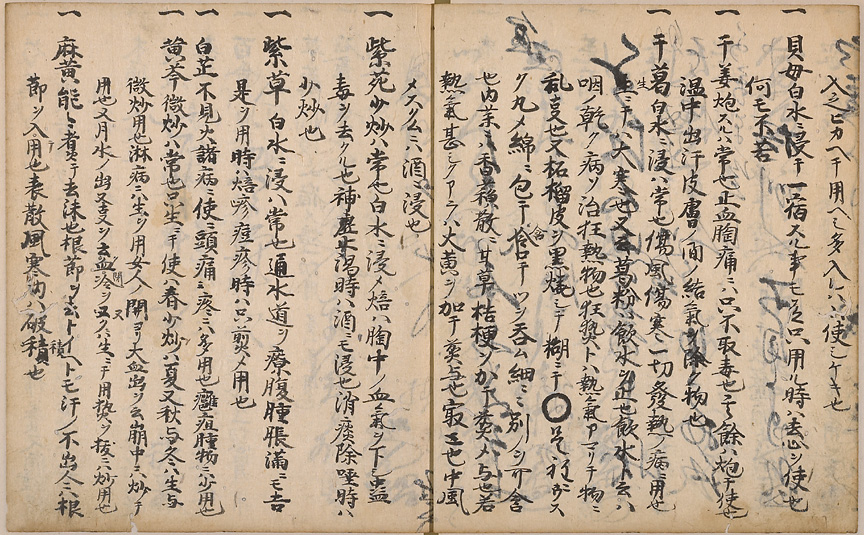 入之ヒカヘテ用ヘシ多入レハ使シケキ也
一 貝母白水ニ浸テ一宿スル事モ在只用ル時ハ悉シ使也
何モ不苦
一 干姜炮スルハ常也止血胸痛ニハ只不取毒也其餘ハ炮テ使也
温中出汗皮膚ノ間ノ結氣ヲ除ク物也
一 干葛白水ニ浸ハ常也傷風傷寒一切發熱ノ病ニ用也
生ニテハ大寒也又云葛粉ハ飲水ヲ止也飲水ト云ハ
咽ノ乾ク病ヲ治狂熱物也狂熱トハ熱氣アマリテ物ニ
乱事也又柘榴皮ヲ黒焼ニシテ糊ニテ〇是程ガス
ク丸メ綿ニ包テ含口テツヽ呑ム細ミ別シテ含
也内薬ニハ香薷散ニ甘草桔梗ヲ加テ煎メ与也若
熱氣甚シクアラハ大黄ヲ加テ煎与也最上也中風
メスクムニハ酒ニ浸也
一 紫苑少炒ハ常也白水ニ浸メ焙ハ胸中ノ血氣ヲ下シ蠱
毒ヲ去クル也神虚止渇時ハ酒ニモ浸也消痰除唾時ハ
少炒也
一 紫草白水ニ浸ハ常也通水道ヲ療腹腫脹滿ニモ吉
是ヲ用時ハ焙疹痘疹時ハ只煎メ用也
一 白芷不見火諸病使ニ頭痛ニ疼ニハ多用也癰疽腫物ニ少用也
一 黄芩微炒ハ常也只生ニテ使ハ春少炒ハ夏又秋与冬ハ生与
微炒用也淋病ニ生ヲ用女人開ヨリ大血出ヲ云崩中ニハ炒テ
用也又月水ノ出又支ヲ云血疼ヲ又ハ生ニテ用熱ヲ抜ニハ炒用也
一 麻黄ハ能ト煮テ去沫也根節ヲ去トイヘトモ汗ノ不出人ニハ根
節ヲ入用也表散風寒内ハ破積也